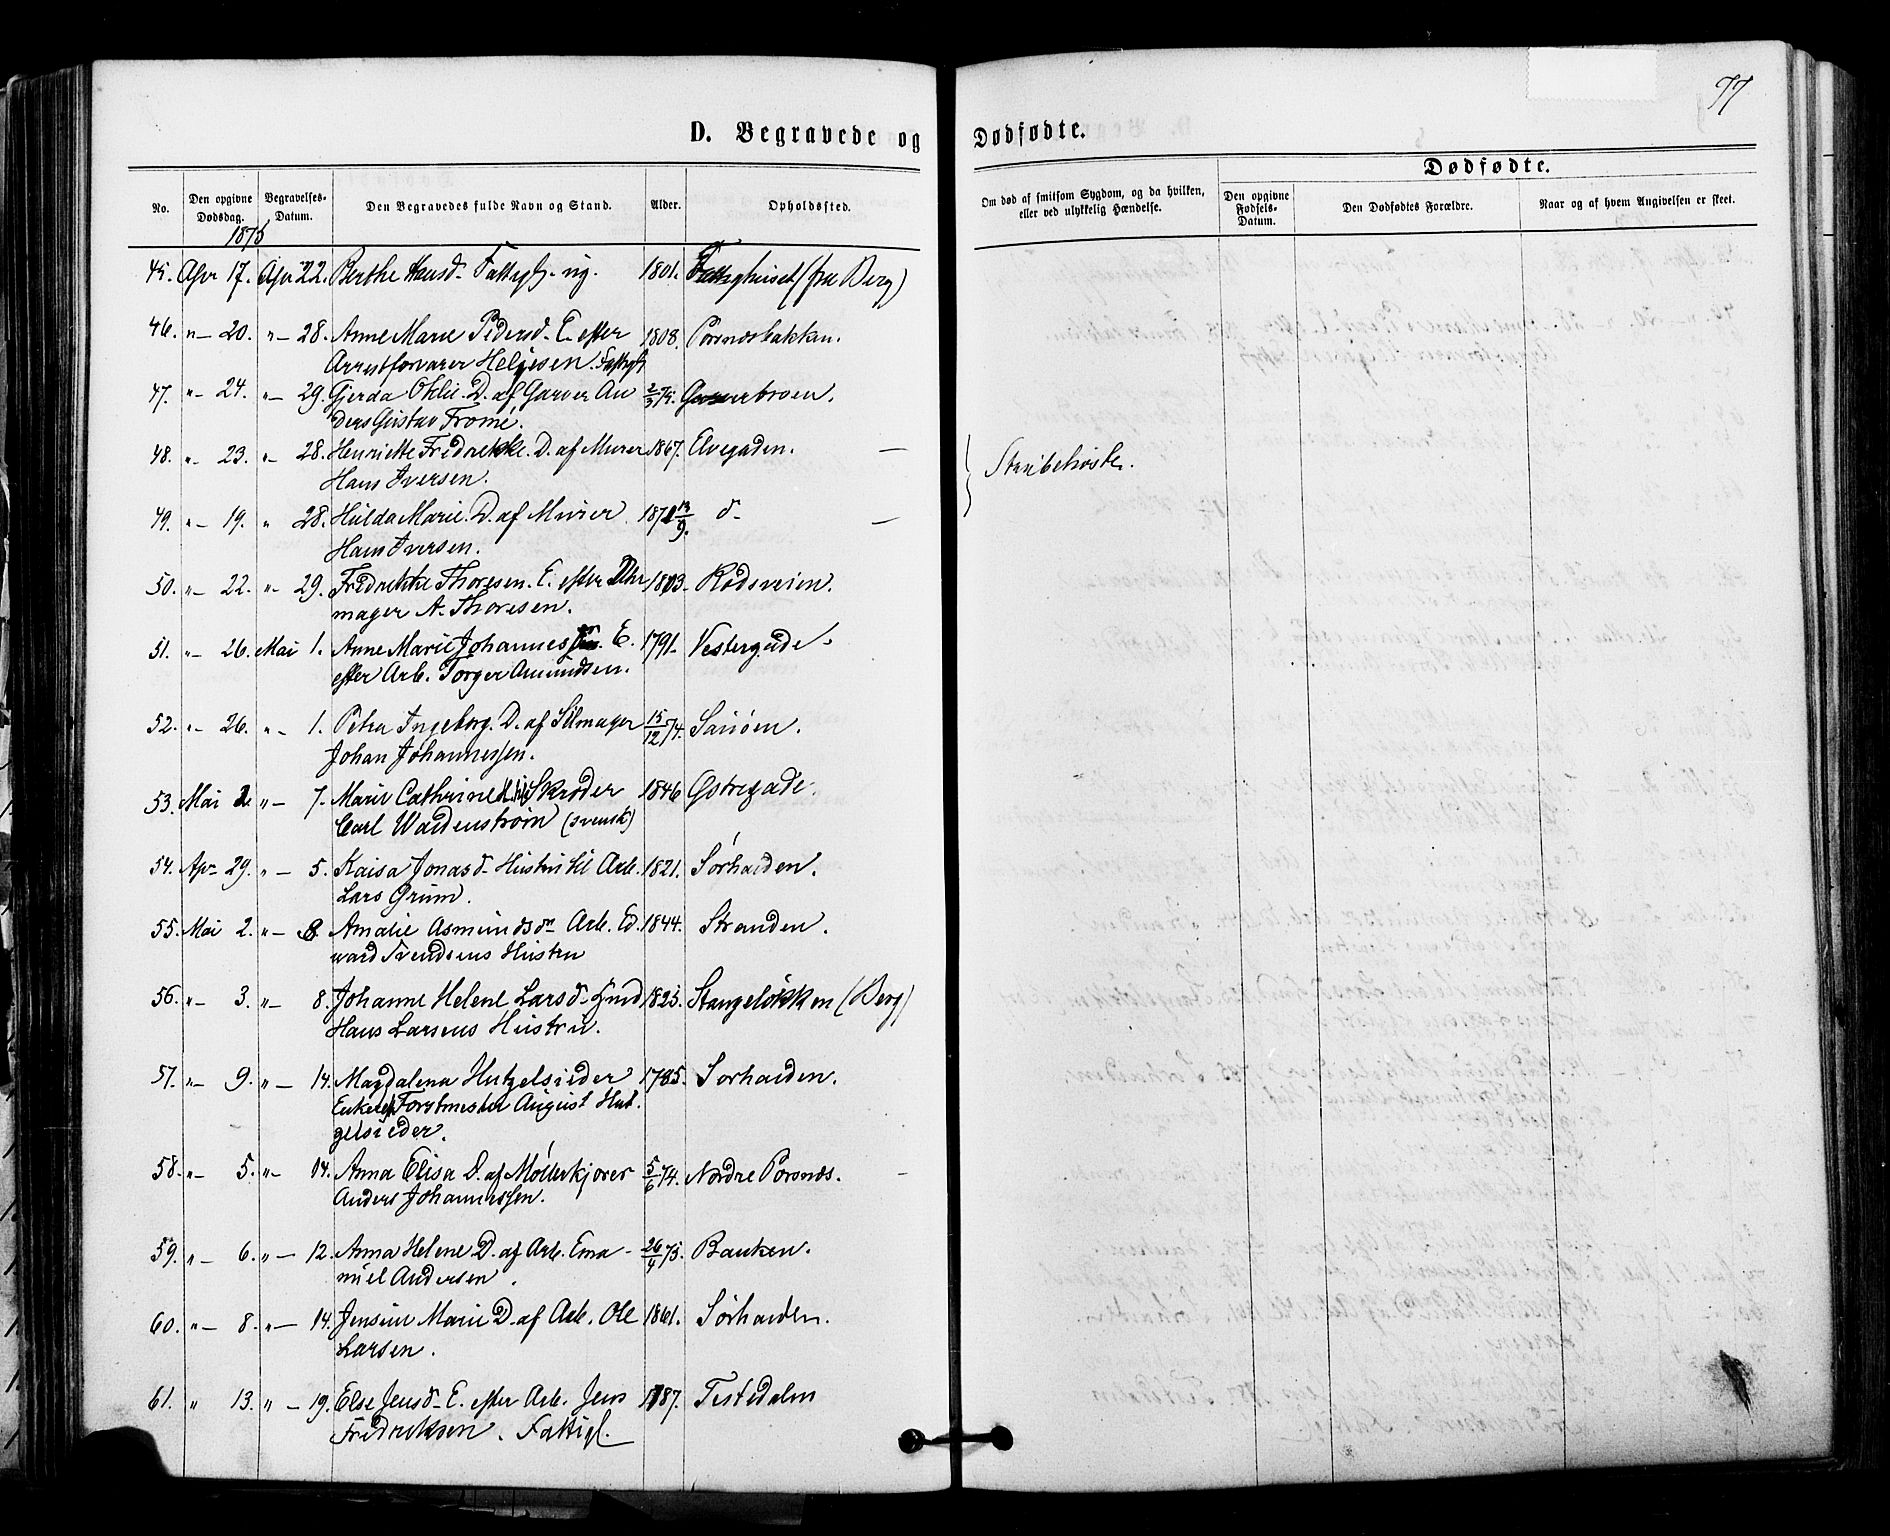 77
D. Begravede og Dødfødte.
Dødfødte.
No.
Den opgivne Dødsdag.
Begravelses-Datum.
Den Begravedes fulde Navn og Stand.
Alder.
Opholdssted.
Om død af smitsom Sygdom, og da hvilken, eller ved ulykkelig Hændelse.
Den opgivne Fødsels-Datum.
Den Dødfødtes Forældre.
Naar og af hvem Angivelsen er skeet.
1875
45. Apr 17. Apr 22. Berthe Hansd. Fattigl. ug. 1801. Fattighuset (fra Berg)
46. "- 20. "- 28. Anne Marie Pedersd. E. efter 1808. Porsnæsbakken.
Arrestforvarer Helgesen. Fattigl
47. "- 24. "- 29. Gjerda Otilie. D. af Garver An 2/3 75. Garverbroen.
ders Gustav Fromé.
48. "- 23. "- 28. Henriette Fredrikke. D. af Murer 1867. Elvegaden. — Strubehoste.
Hans Iversen.
49. "- 19. " 28. Hulda Marie. D. af Murer 1871 13/9. d- —
Hans Iversen.
50. "- 22. "- 29. Fredrikke Thoresen. E. efter Uhr 1813- Rødsveien.
mager A. Thoresen.
51. "- 26. Mai 1. Anne Marie Johannes E. 1791- Vestergade-
efter Arb. Torger Amundsen.
52. "- 26. "- 1. Petra Ingeborg. D. af Silmager 15/12 74. Sauøen.
Johan Johannessen.
53. Mai 2 "- 7. Marie Cathrine Skræder 1846 Østregade.
Carl Wardenstrøm (svensk)
54. Apr 29. "- 5. Kaisa Jonasd- Hustru til Arb. 1821. Sørhaiden.
Lars Grum.
55. Mai 2. "- 8. Amalie Asmundsdr Arb. Ed. 1844. Stranden.
ward Svendsens Hustru
56. "- 3. "- 8. Johanne Helene Larsd- Hmd 1823. Stangeløkken (Berg)
Hans Larsens Hustru.
57. "- 9. "- 14. Magdalena Hutzelsieder 1785. Sørhaiden.
Enke ef. Forstmester August Hut.
zelsieder.
58. "- 5. "- 14. Anna Elisa D. af Møllerkjører 5/6 74. Nordre Porsnæs. —
Anders Johannessen.
59. "- 6. "- 12. Anna Helene D. af Arb. Ema- 26/4 75. Banken.
nuel Andersen.
60. "- 8. "- 14. Jensine Marie D. af Arb. Ole 1861. Sørhaiden.
Larsen.
61. " 13. "- 19. Else Jensd- E. efter Arb. Jens 1787. Tistedalen
Fredriksen. Fattigl.